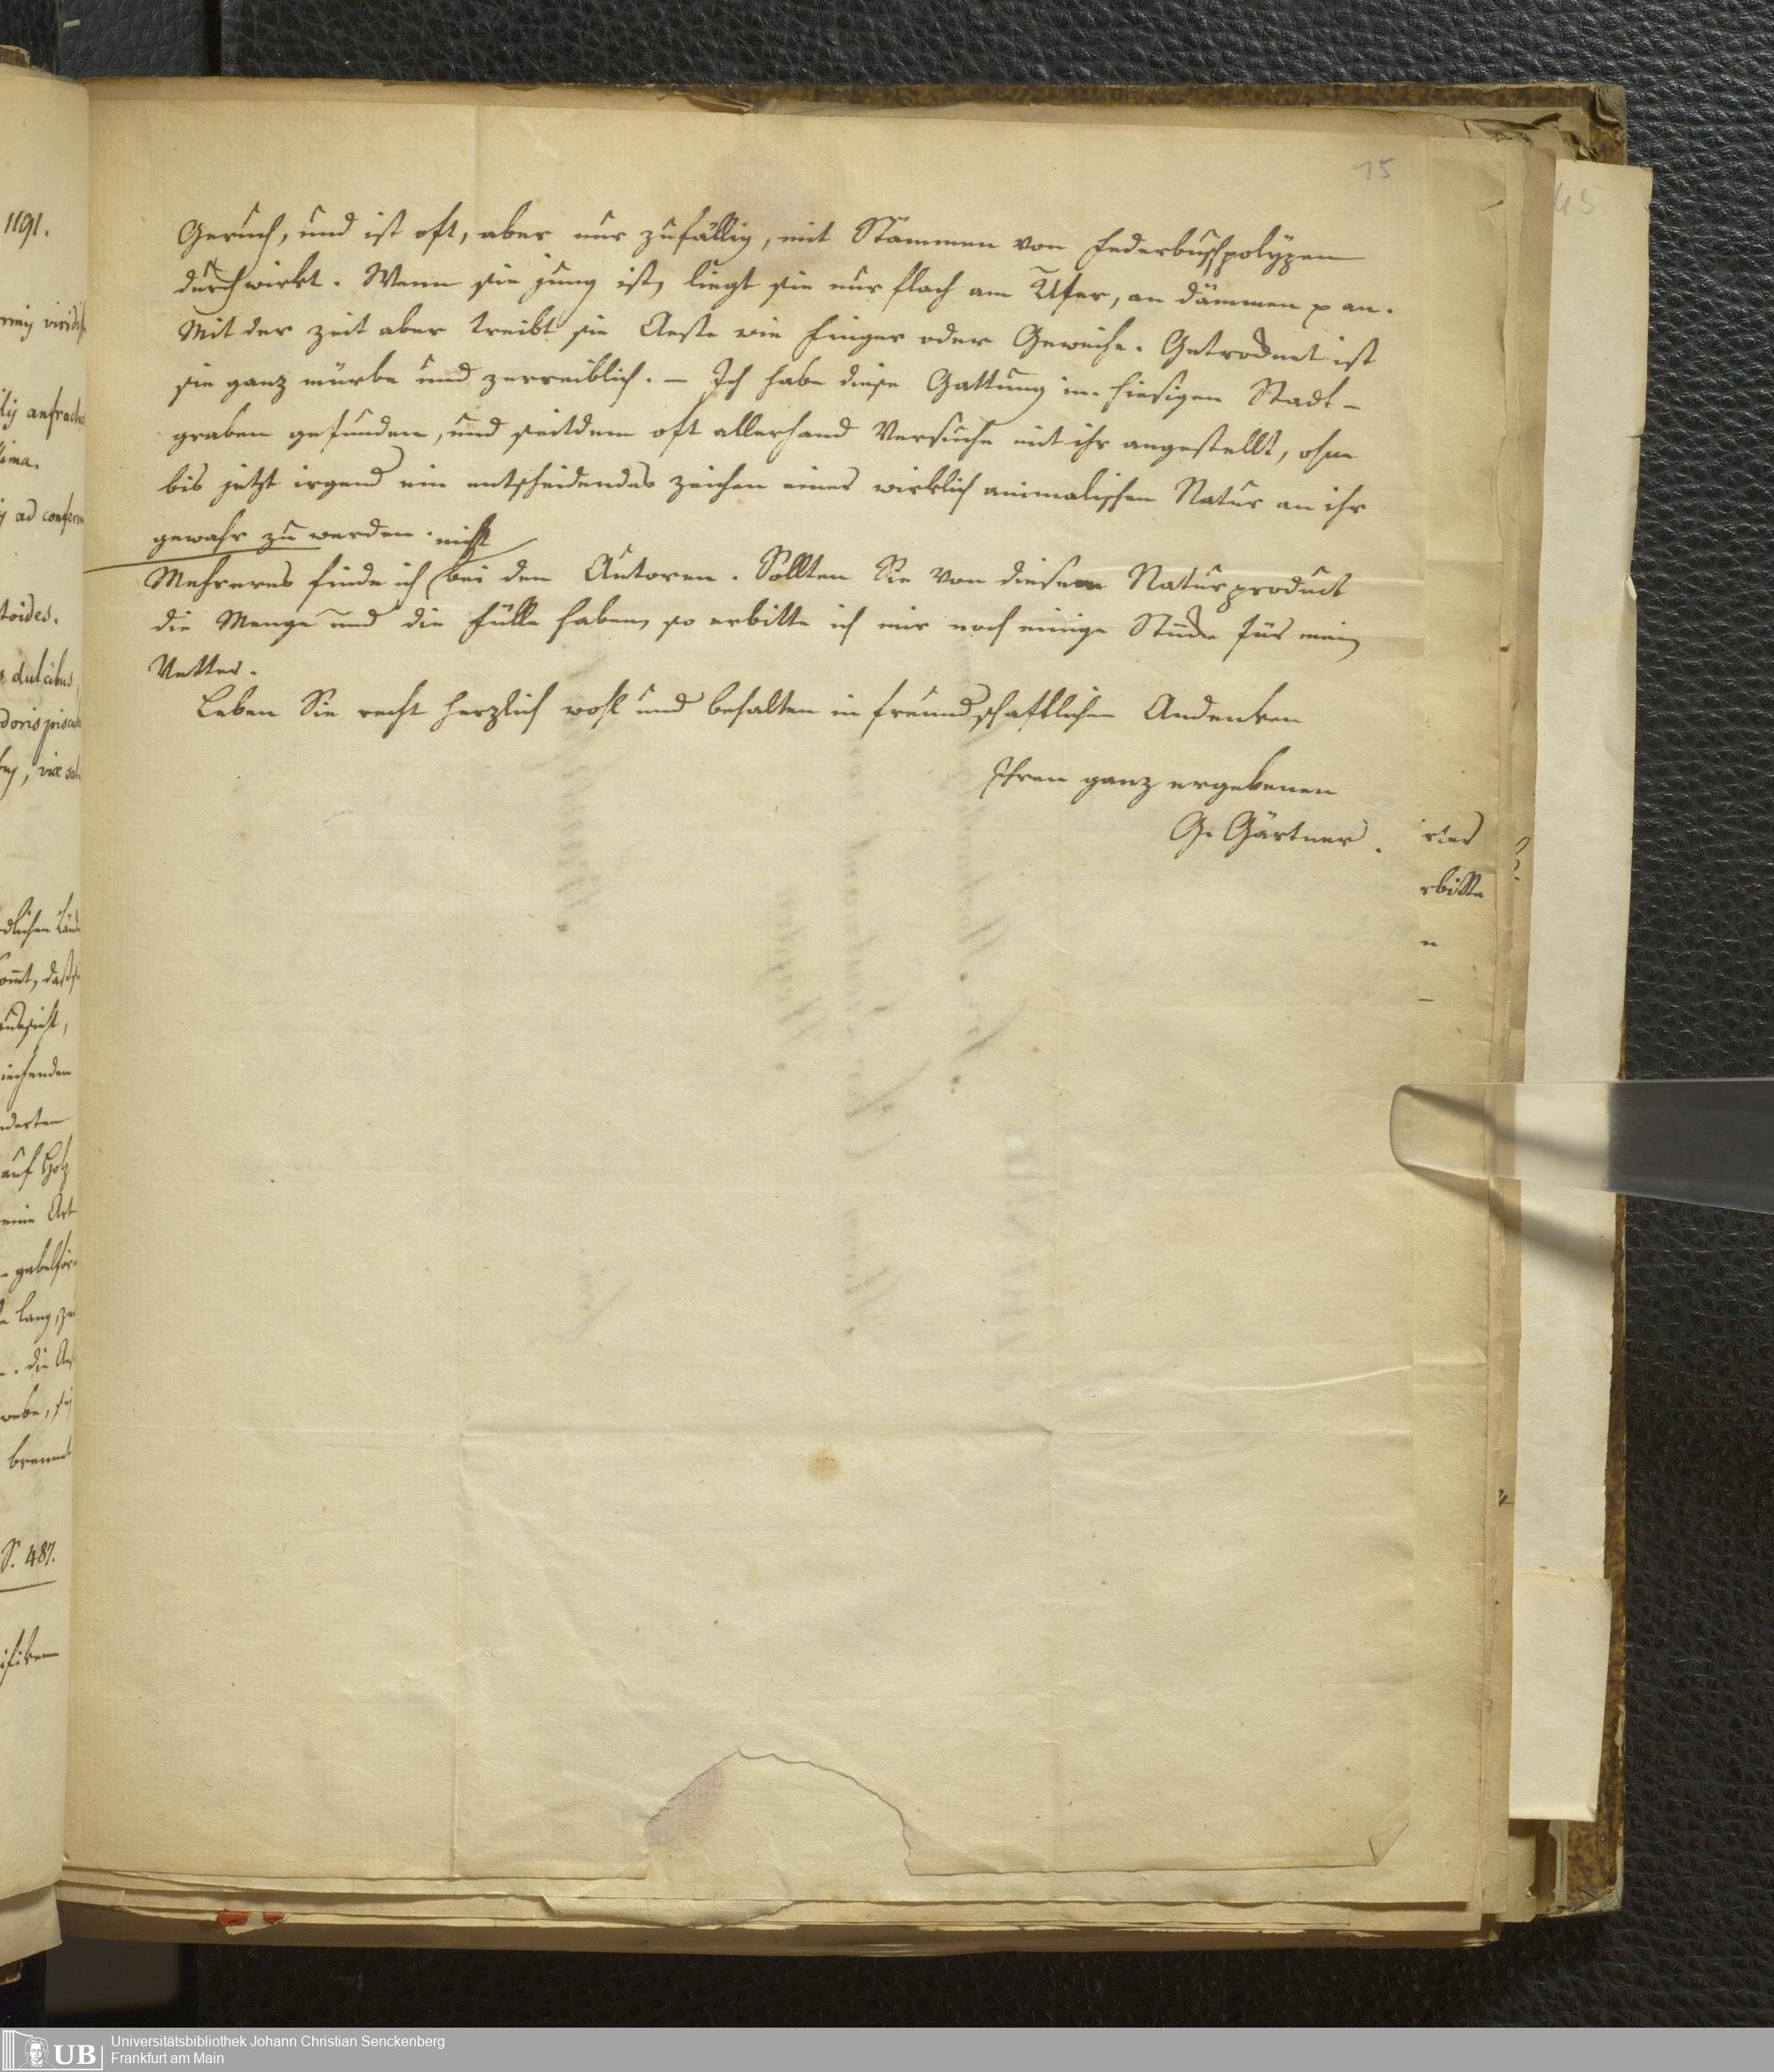 15
Geruch, und ist oft, aber nur zufällig, mit Stämmen von Federbuschpolÿpen
durchwirkt. Wenn sie jung ist, liegt sie nur flach am Ufer, an Dämmen p an.
Mit der Zeit aber treibt sie Aeste wie Finger oder Geweihe. Getrocknet ist
sie ganz mürbe und zerreiblich. – Ich habe diese Gattung im hiesigen Stadt-
graben gefunden, und seitdem oft allerhand Versuche mit ihr angestellt, ohne
bis jetzt irgend ein entscheidendes Zeichen einer wirklich animalischen Natur an ihr
gewahr zu werden. nicht
Mehreres finde ich bei den Autoren. Sollten Sie von diesem Naturproduct
die Menge und die Fülle haben, so erbitte ich mir noch einige Stücke für mein
Vetter.
Leben Sie recht herzlich wohl und behalten in freundschaftlichen Andenken
Ihren ganz ergebenen
G. Gärtner.
1191.
lij anfractu
ad conferv
toides.
dulcibus,
doris pisc
dlichen Länd
omt, daß s
auf Holz
eine Art
gabelför
lang, zu
. die Aes
brennt
S. 487.
rbitte
45
UB
Universitätsbibliothek Johann Christian Senckenberg
Frankfurt am Main